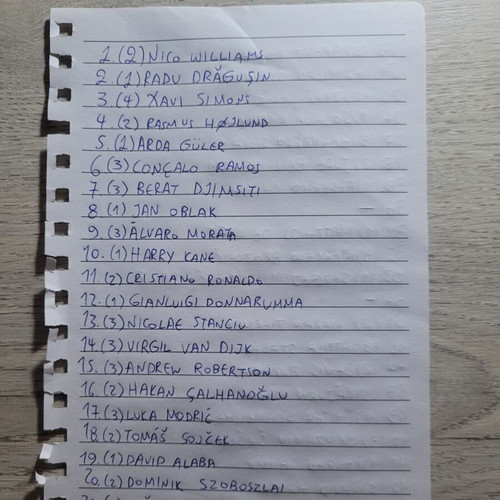 1. (2) NICO WILLIAMS
2. (1) RADU DRĂGUȘIN
3. (4) XAVI SIMONS
4. (2) RASMUS HØJLUND
5. (1) ARDA GÜLER
6 (3) CONÇALO RAMOS
7 (3) BERAT DJIMSITI
8 (1) JAN OBLAK
9. (3) ÁLVARO MORATA
10. (1) HARRY KANE
11. (2) CRISTIANO RONALDO
12. (1) GIANLUIGI DONNARUMMA
13. (3) NICOLAE STANCIU
14. (3) VIRGIL VAN DIJK
15. (3) ANDREW ROBERTSON
16. (2) HAKAN ÇALHANOĞLU
17 (3) LUKA MODRIĆ
18. (2) TOMÁŠ SOJČEK
19. (1) DAVID ALABA
20. (2) DOMINIK SZOBOSZLAI